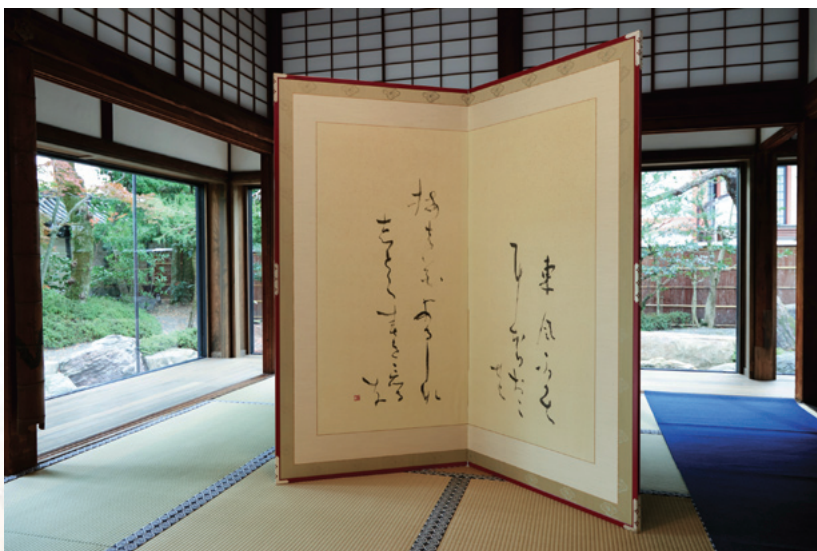 東風ふかは
にほひおこ
せよ
梅の花あるしな
しとて春を忘る
な